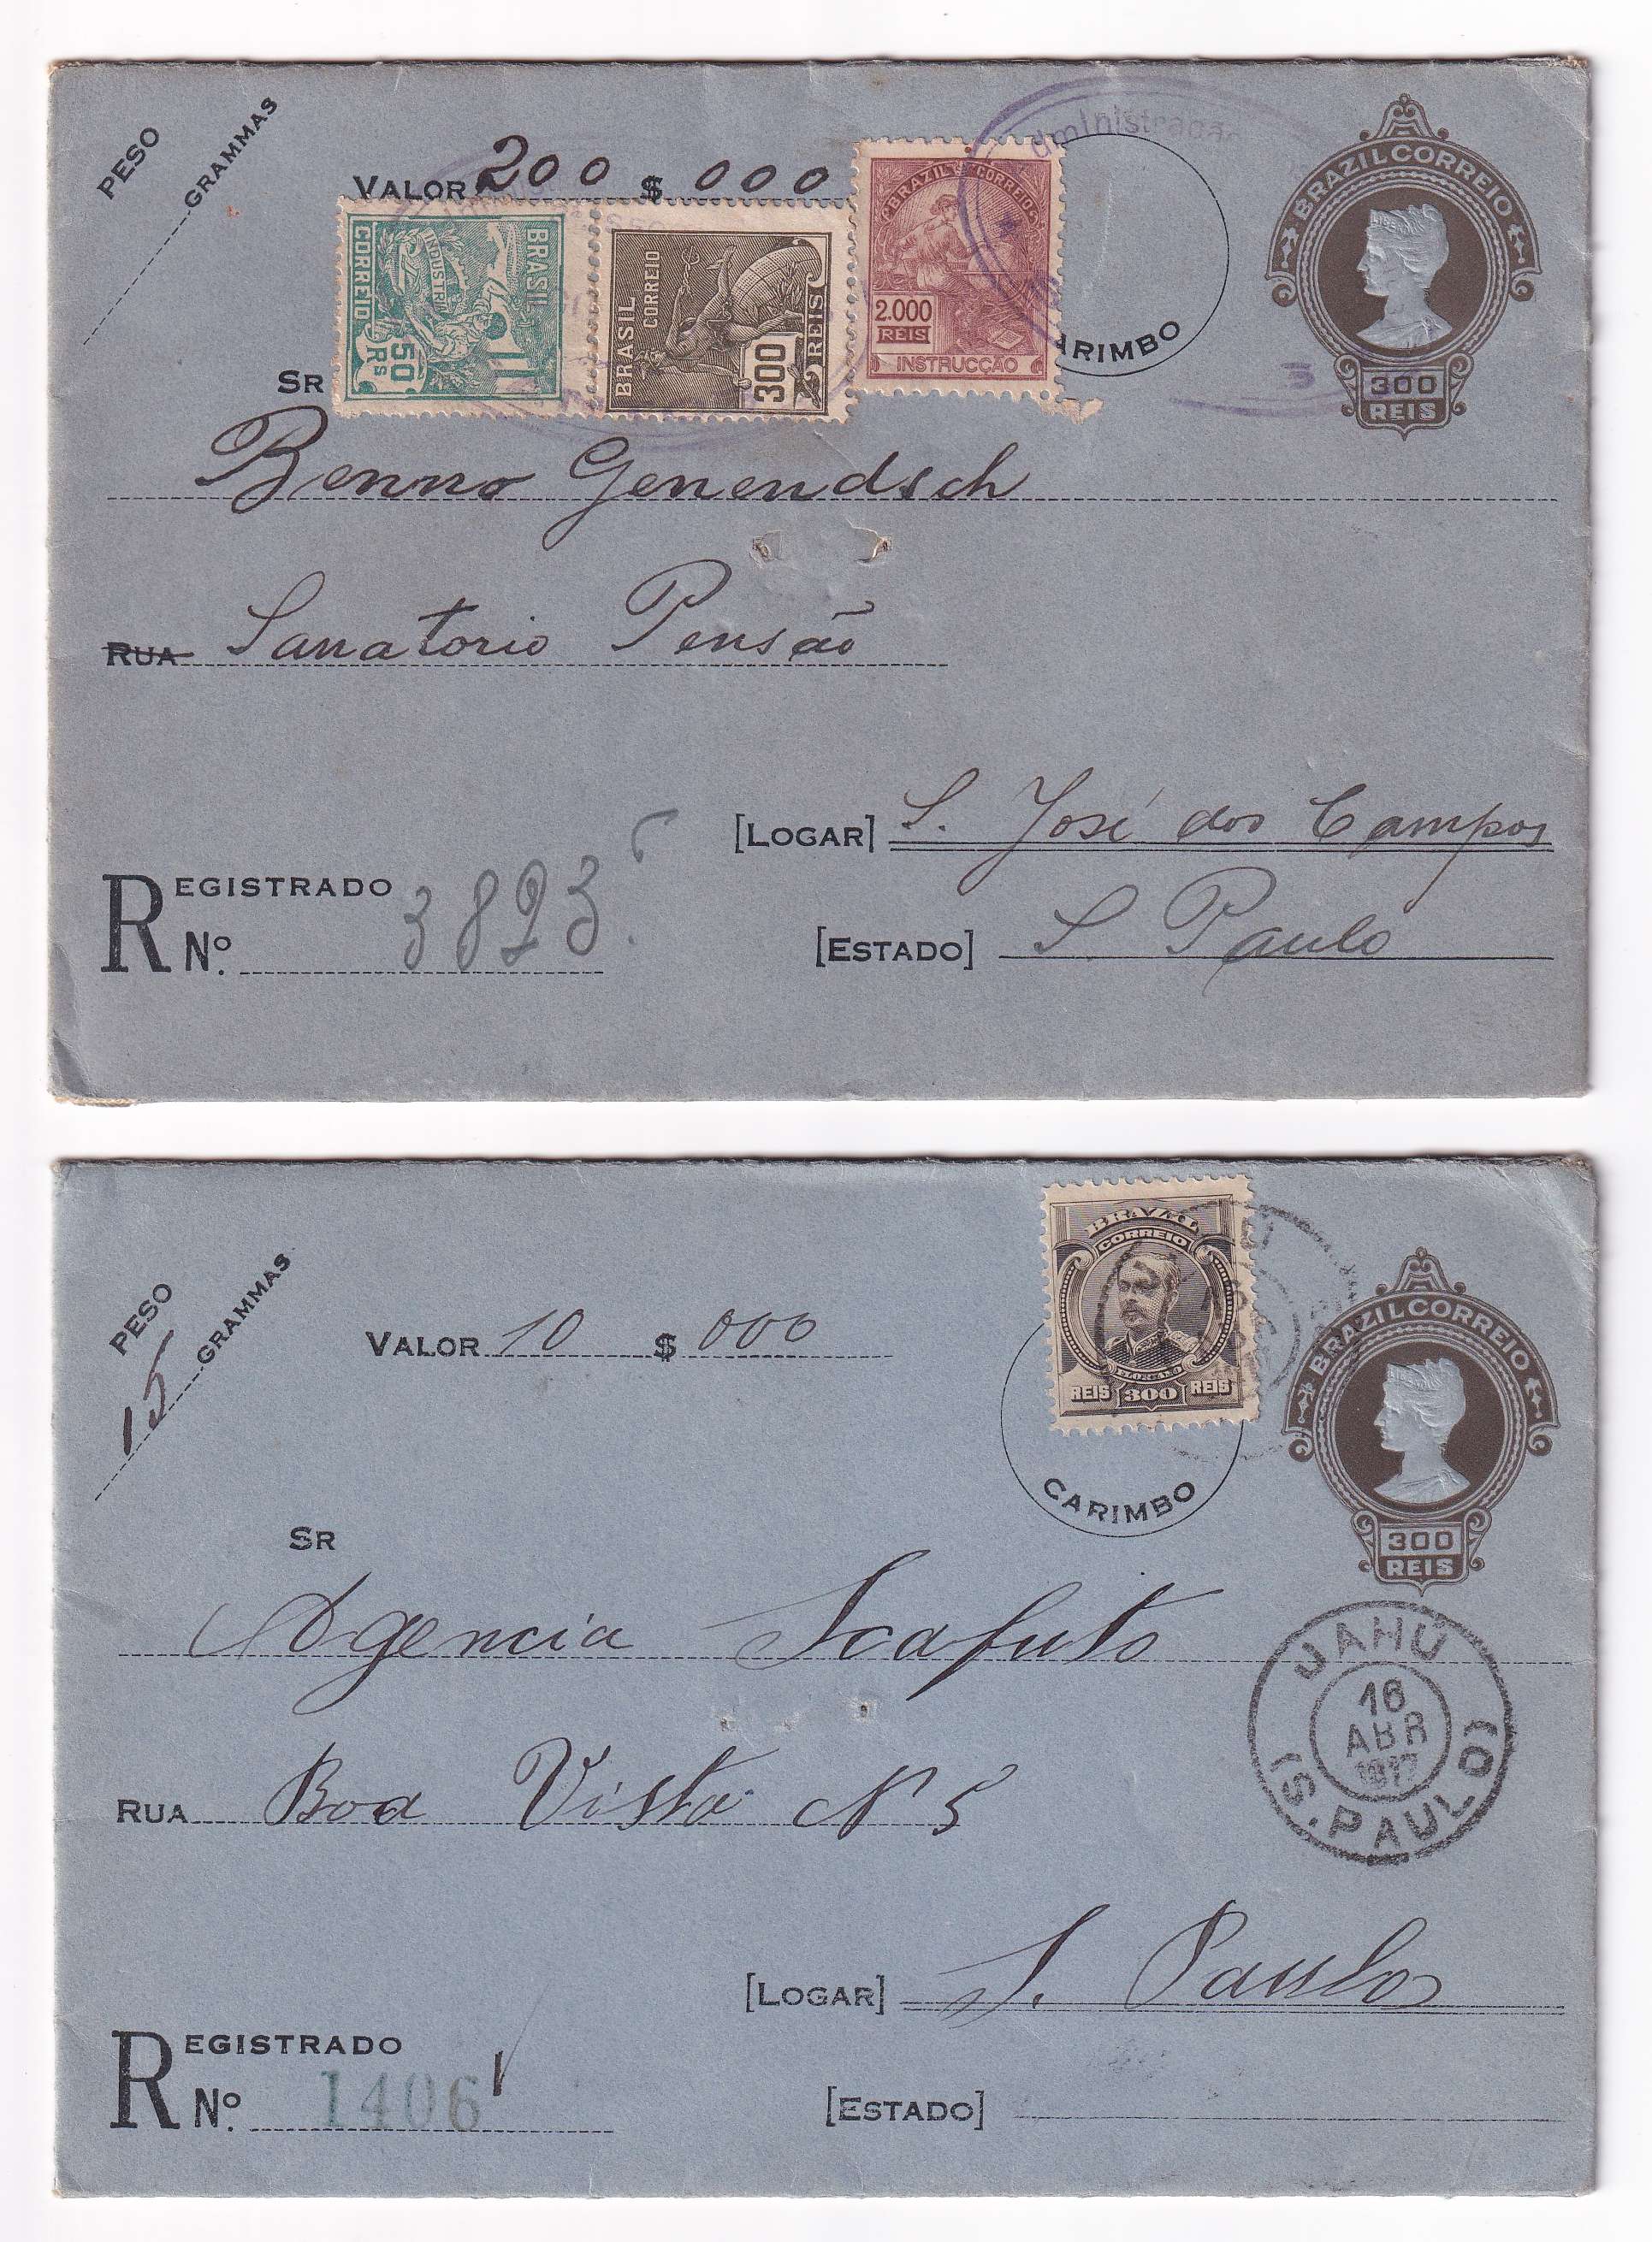 PESO
GRAMMAS
VALOR 200 $ 000
dministração
BRASIL
CORREIO
INDUSTRIA
50 RS
BRASIL
CORREIO
300 REIS
BRAZIL CORREIO
2.000
REIS
INSTRUCÇÃO
ARIMBO
BRAZIL CORREIO
LIBERTAS
300
REIS
SR
Benno Genendsch
RUA Sanatorio Pensão
[LOGAR] S. José dos Campos
REGISTRADO
Nº. 3823
[ESTADO] S Paulo
PESO
15 GRAMMAS
VALOR 10 $ 000
BRAZIL
CORREIO
FLORIANO
REIS 300 REIS
CARIMBO
BRAZIL CORREIO
300
REIS
SR
Agencia Scafuto
JAHÚ
16
ABR
1917
(S. PAULO)
RUA Boa Vista Nº 5
[LOGAR] S. Paulo
REGISTRADO
Nº. 1406
[ESTADO]